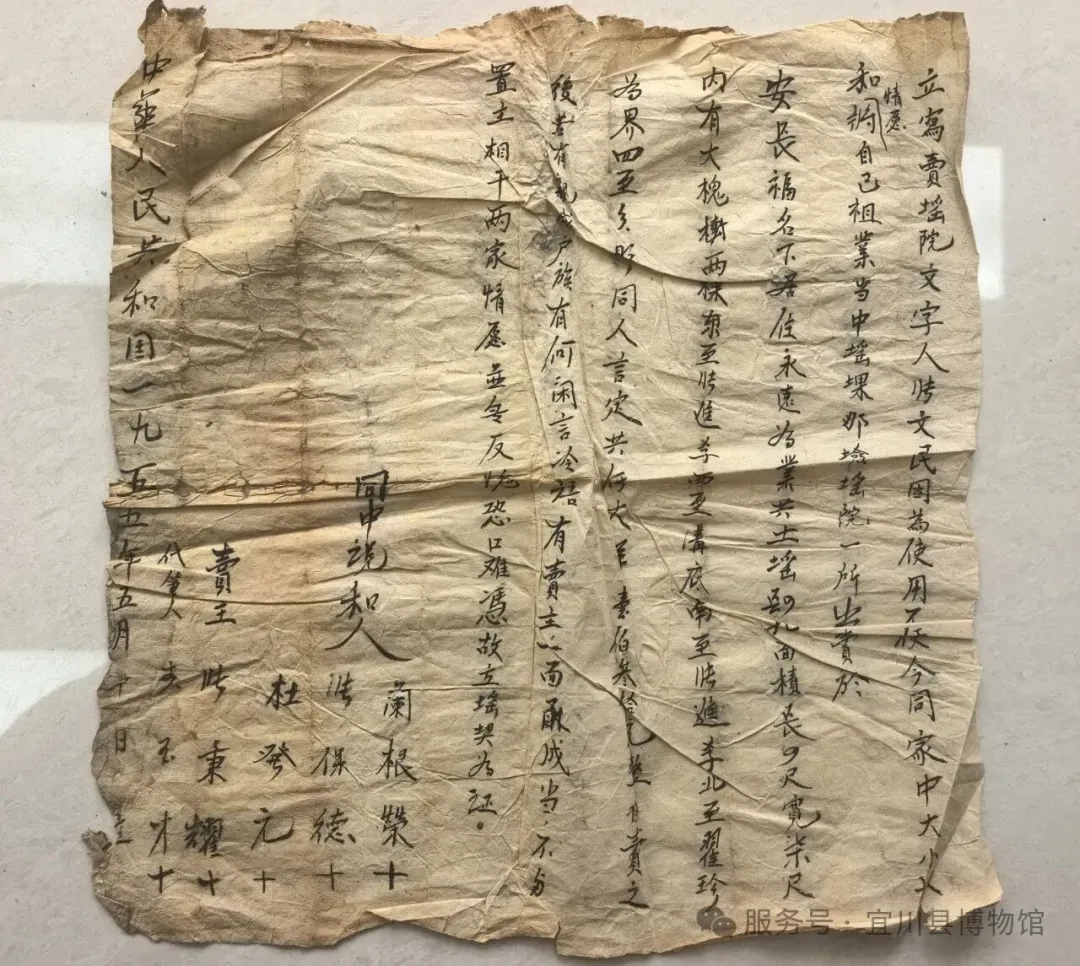 立寫賣塆院文字人張文民因為使用不便今同家中大小人
情愿
和將自己祖業当中塆塬那塆院一所出賣於
安長福名下居住永遠為業共土塆孔面積長尺寬柒尺
内有大槐樹两保東至張進孝西至溝底南至張進孝北至翟珍
為界四至分明同人言定共作大壹佰叁拾元並日賣之
後若有親戶族有何闲言冷語有賣主一面承成当不与
置主相干两家情愿並無反悔恐口难憑故立塆契為証。
同中説和人
蘭根榮十
張保德十
杜發元十
賣主 張秉耀十
代筆人 玉才十
中華人民共和国一九五五年五月十日立
服务号：宜川县博物馆